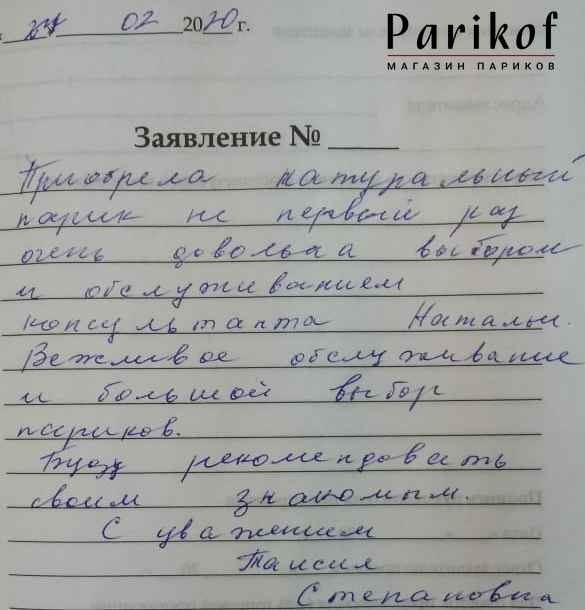 Parikof
МАГАЗИН ПАРИКОВ
02 2020 г.
Заявление №
Приобрела натуральный
парик не первый раз
очень довольна выбором
и обслуживанием
консультанта Натальи.
Вежливое обслуживание
и большой выбор
париков.
Буду рекомендовать
своим знакомым.
С уважением
Таисия
Степановна